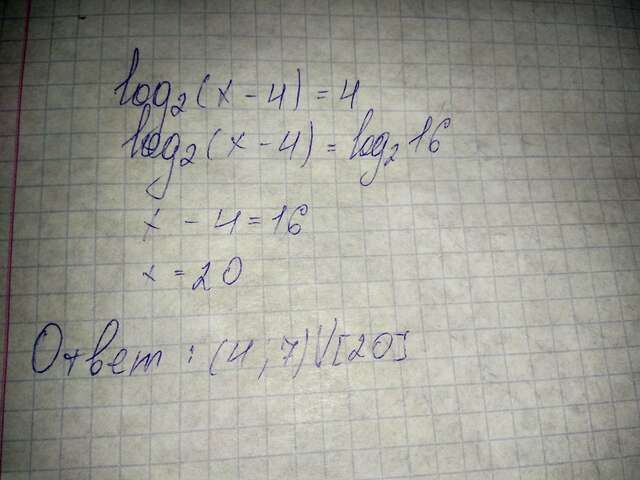 log₂(x-4)=4
log₂(x-4)=log₂16
x-4=16
x=20
Ответ: (4;7)V[20]